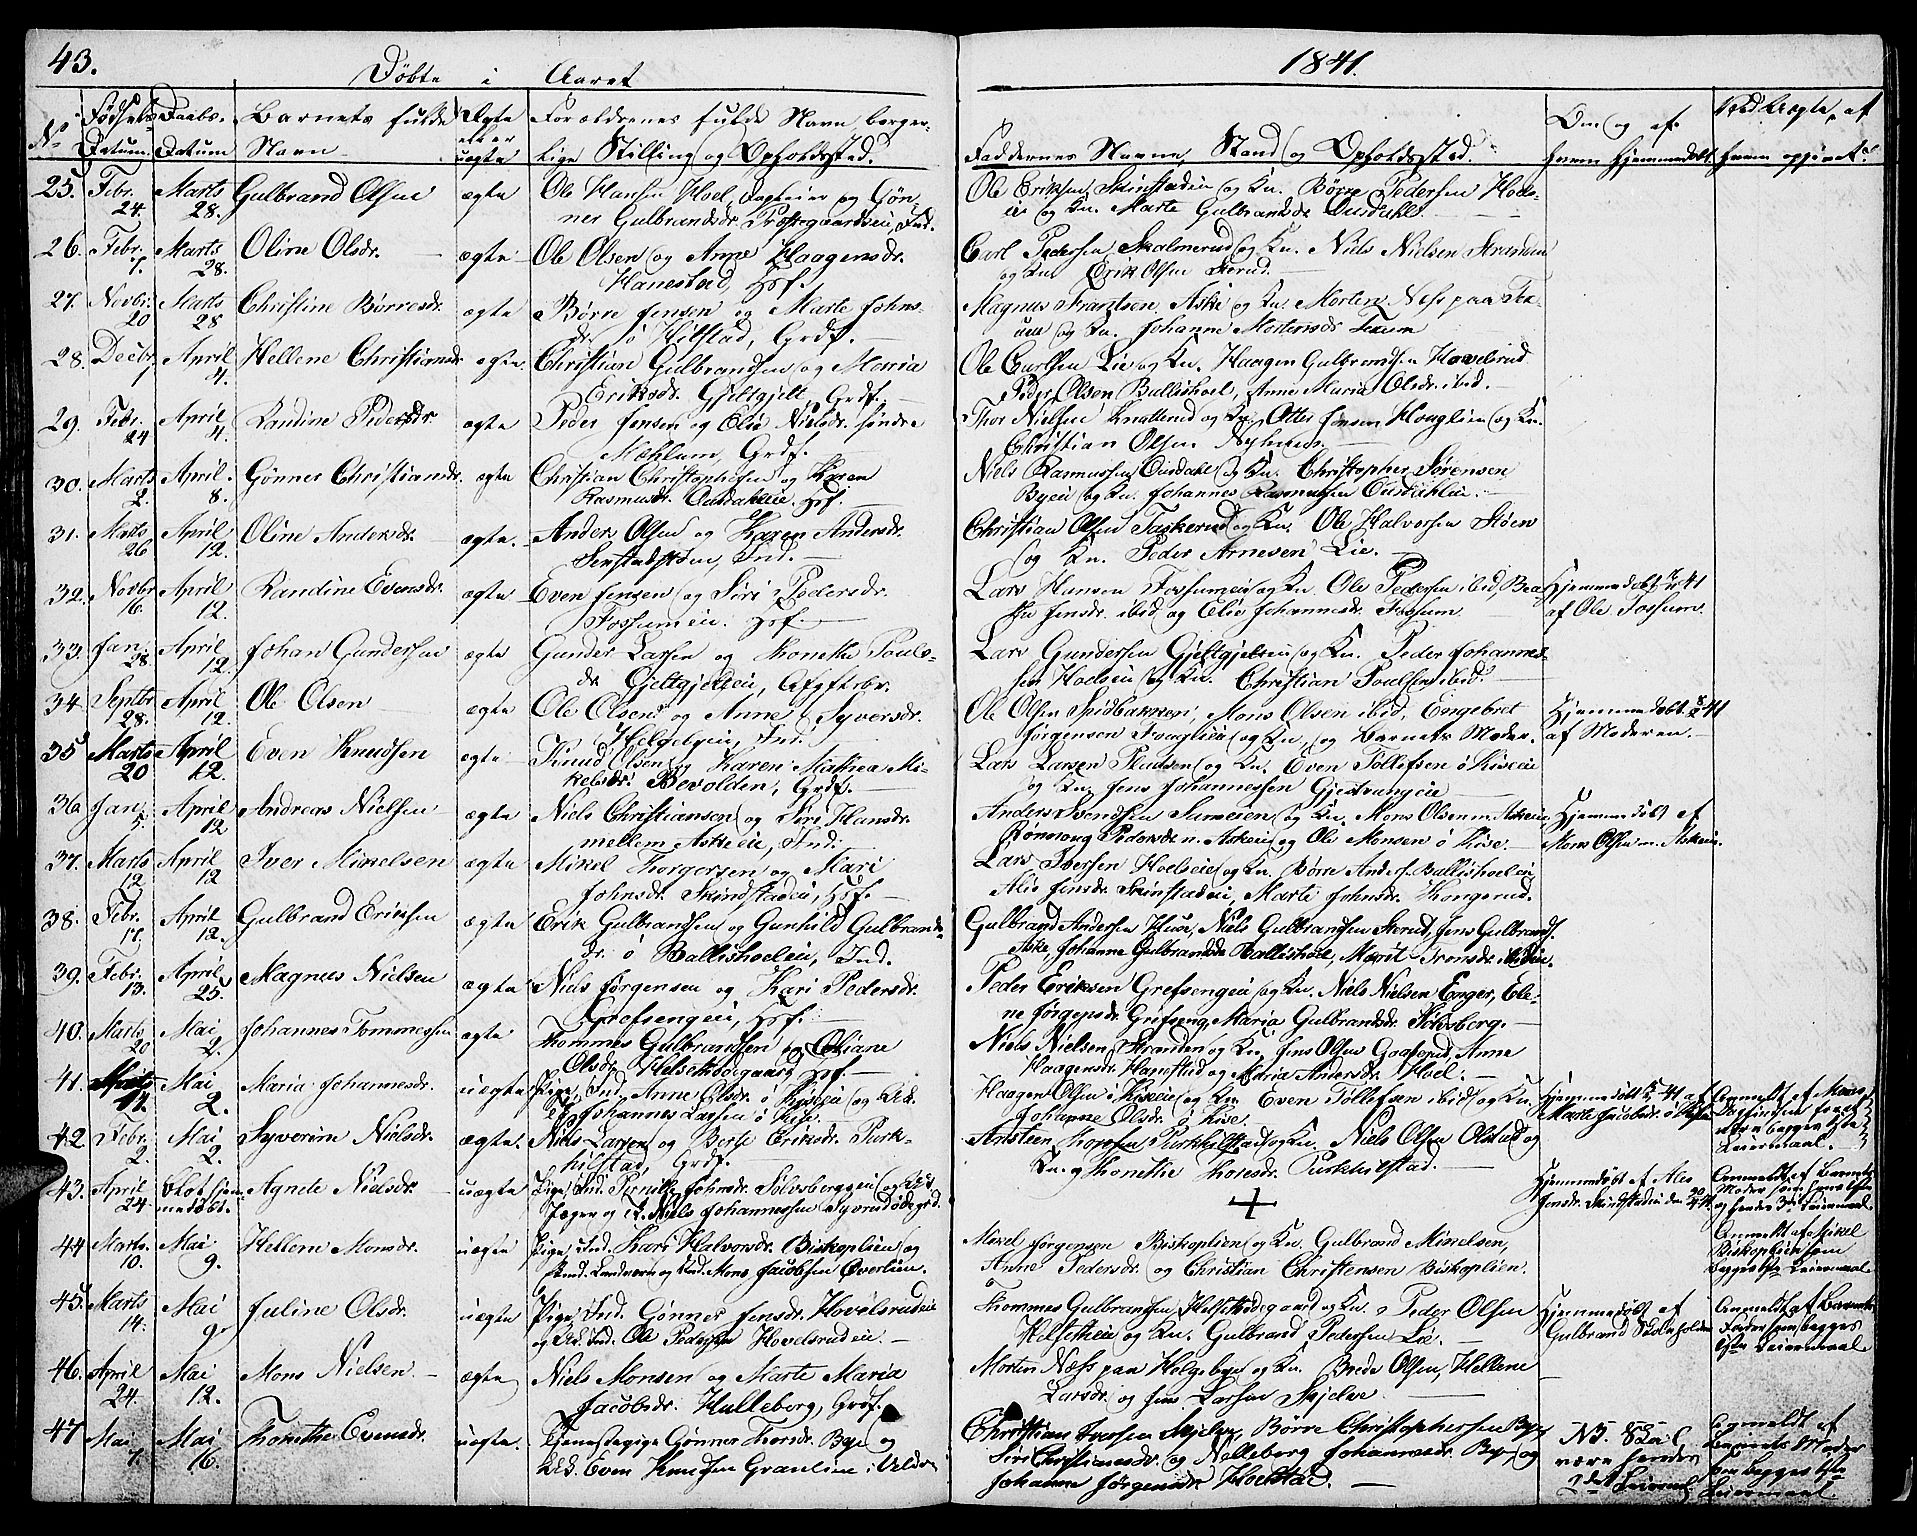 43.
Døbte i Aaret
1841.
No Fødsels Datum. Daabs Datum Barnets fulde Navn Ægte eller uægte Forældrenes fulde Navn, borgerlige Stilling og Opholdssted. Faddernes Navne, Stand og Opholdssted. Om og af hvem Hjemmedøbt
25. Febr. 24. Marts 28. Gulbrand Olsen ægte Ole Hansen Hoel, og Gønner Gulbrandsdr.
Ole Eriksen Skinstadeie og Kn. Børre Pedersen Hoeleie og Kn. Marte Gulbrandsdr.
26. Febr. 7. Marts 28. Oline Olsdr. ægte Ole Olsen og Anne Haagensdr.
Hanestad, Hsf.
Carl Pedersen Skalmerud og Kn. Niels Nielsen Stranden
og Kn. Erik Olsen Sterud.
27. Novbr. 20 Marts 28 Christine Børresdr. ægte Børre Jensen og Marte Johnsdr. ø Hilstad, Grdf.
Magnus Frantsen Aske og Kn. Morten Næss paa
og Kn. Johanne Mortensdr.
28. Decbr. 1. April 4. Hellene Christiansdr. ægte Christian Gulbrandsen og Maria
Eriksdr. Gjeltgjelt, Grdf.
Ole Carlsen Lie og Kn. Haagen Gulbrandsen Hovelsrud
Peder Olsen Ballishoel, Anne Maria Olsdr. ibid.
29. Febr. 24 April 4. Randine Pedersdr. ægte Peder Jensen og Elie Nielsdr. søndre
Mæhlum, Grdf.
Thor Nielsen Knatterud og Kn. Otter Jensen Houglien og Kn.
Christian Olsen Nyhuus
30. Marts 2. April 8. Gønner Christiansdr. ægte Christian Christophersen og Karen
Rasmusdr. Ousdahleie. Hsf.
Niels Rasmussen Ousdahl og Kn. Christopher Sørensen
Byeeie og Kn. Johannes Rasmussen Ousdahleie.
31. Marts 26 April 12. Oline Andersdr. ægte. Anders Olsen og Karen Andersdr.
Christian Olsen Taskerud og Kn. Ole Halvorsen Støen
og Kn. Peder Arnesen Lie.
32. Novbr 16. April 12. Randine Evensdr. ægte Even Jensen og Siri Pedersdr.
Fossumeie. Hsf.
Lars Hansen Fossumeie og Kn. Ole Pedersen ibid, Beathe Jensdr. ibid og Elie Johannesdr. Fossum.
Hjemmedøbt 41
af Ole Fossum.
33. Jan. 28. April 12. Johan Gundersen ægte Gunder Larsen og Thonethe Poulsdr. Gjeltgjelteie,
Lars Gundersen Gjeltgjelteie og Kn. Peder Johannessen Hoeleie og Kn. Christian Poulsen ibid.
34. Septbr 28. April 12. Ole Olsen ægte Ole Olsen og Anne Syversdr.
Helgebyeie, Ind.
Ole Olsen Smidbakken, Mons Olsen ibid, Engebret
Jørgensen Houglieie og Kn. og Barnets Moder.
Hjemmedøbt 41
af Moderen.
35 Marts 20 April 12. Even Knudsen ægte Knud Olsen og Karen Mathea Mikelsdr. Bevolden, Grdf.
Lars Larsen og Kn. Even Tollefsen ø Kiseeie
og Kn. Jens Johannessen
36 Jan. 3. April 12 Andreas Nielsen ægte Niels Christiansen og Siri Hansdr.
mellem Askeeie, Ind.
Anders Svendsen Sumeien og Kn. Mons Olsen m. Askeeie
Pedersdr. m. Askeeie og Ole Monsen ø Kise.
Hjemmedøbt af
Mons Olsen m. Askeeie.
37. Marts 12 April 12 Iver Mikelsen ægte Mikel Thorgersen og Mari
Johnsdr. Skindstadeie, Hsf.
Lars Iversen Hoeleie og Kn. Børre Anders. Ballishoeleie
Alis Jensdr. Skinstadeie, Marte Johnsdr. Kongerud.
38. Febr. 17. April 12. Gulbrand Eriksen ægte Erik Gulbrandsen og Gunhild Gulbrandsdr. ø Ballishoeleie, Ind.
Gulbrand Andersen Huse, Niels Gulbrandsen Sterud, Jens Gulbrands.
Aske, Johanne Gulbrandsdr. Ballishoel, Marit Tronsdr.
39. Febr. 13. April 25. Magnus Nielsen ægte Niels Jørgensen og Kari Pedersdr.
Grefsengeie, Hsf.
Peder Eriksen Grefsengeie og Kn. Niels Nielsen Enger, Elene Jørgensdr. Grefseng, Maria Gulbrandsdr. Sølvsberg.
40. Marts 20 Mai 2. Johannes Tommessen ægte Thommes Gulbrandsen og Oliane
Olsdr. Helsethødegaard Hsf
Niels Nielsen Stranden og Kn. Jens Olsen Anne
Haagensdr. Hanestad og Maria Andersdr. Hoel.
41. 14. Mai 2. Maria Johannesdr. uægte Pige, Ind. Anne Olsdr. ø Kiseeie og
Johannes Larsen ø Kise.
Haagen Olsen ø Kiseeie og Kn. Even Tollefsen ibid og Kn.
Johanne Olsdr. ø Kise.
Hjemmedøbt 41 af
Anmeldt af
være begges 1ste
Leiermaal.
42 Febr. 2. Mai 2. Syverine Nielsdr. ægte Niels Larsen og Berthe Eriksdr. Purkhilstad, Grdf.
Arnsteen Thoresen Purkhilstad og Kn. Niels Olsen Olstad og
Kn. og Thonethe Thoresdr. Purkhilstad.
43. April 24. blot hjemmedøbt. Agnete Nielsdr. uægte Pige, Ind. Pernille Johnsdr. Sølvsbergeie og
Niels Johannessen
+
Hjemmedøbt af Alis
Jensdr. Skindstadeie den
Anmeldt af Barnets
Moder som hans 1ste
og hendes 3die Leiermaal
44 Marts 10. Mai 9. Hellene Monsdr. uægte Pige, Ind. Kari Halvorsdr. Biskoplien og
Mons Jacobsen Øverlien.
Mikel Jørgensen Biskoplien og Kn. Gulbrand Mikelsen,
Anne Pedersdr. og Christian Christensen Biskoplien.
Anmeldt af Mikel
Biskoplien som
begges 1ste Leiermaal
45. Marts 14. Mai 9. Juline Olsdr. uægte Pige, Ind. Gønner Jensdr. Hovelsrudeie
og Ole Pedersen Hovelsrudeie.
Thommes Gulbrandsen Helsethødegaard og Kn. Peder Olsen
Helsetheie og Kn. Gulbrand Pedersen Lie.
Hjemmedøbt af
Gulbrand Skoleholder
Anmeldt af Barnets
Fader som begges
1ste Leiermaal
46. April 24. Mai 12. Mons Nielsen ægte Niels Monsen og Marte Maria
Jacobsdr. Hulleborg, Grdf.
Morten Næss paa Helgebye og Kn. Brede Olsen, Hellene
Larsdr. og Jens Larsen Skjelve
47 Mai 7. Mai 16. Thonethe Evensdr. uægte. Tjenestepige Gønner Thorsdr. Bye og
Even Knudsen Granlien i Veldre
Christian Iversen Skjelve, Børre Christophersen Bye,
Siri Christiansdr. og Nelleborg Johannesdr. Bye, og
Johanne Jørgensdr.
NB. Skal
være hendes
2det Leiermaal
Anmeldt af
Barnets Moder
som begges 1ste
Leiermaal